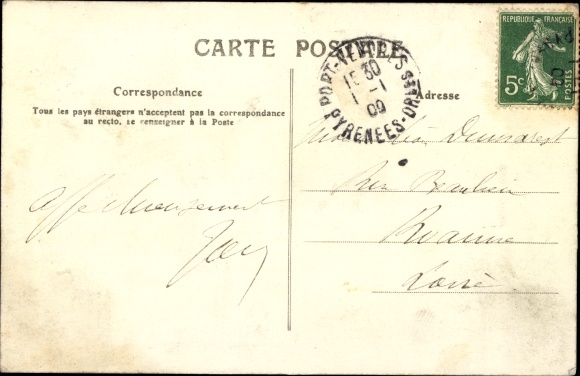 CARTE POSTALE
Correspondance
Tous les pays étrangers n'acceptent pas la correspondance
au recto, se renseigner à la Poste
Adresse
REPUBLIQUE FRANÇAISE
5c
POSTES
PORT-VENDRES
15 30
1 - 1
09
PYRENEES-ORles
Affectueusement
Léon Dumarest
Rue Beaulieu
Roanne
Loire